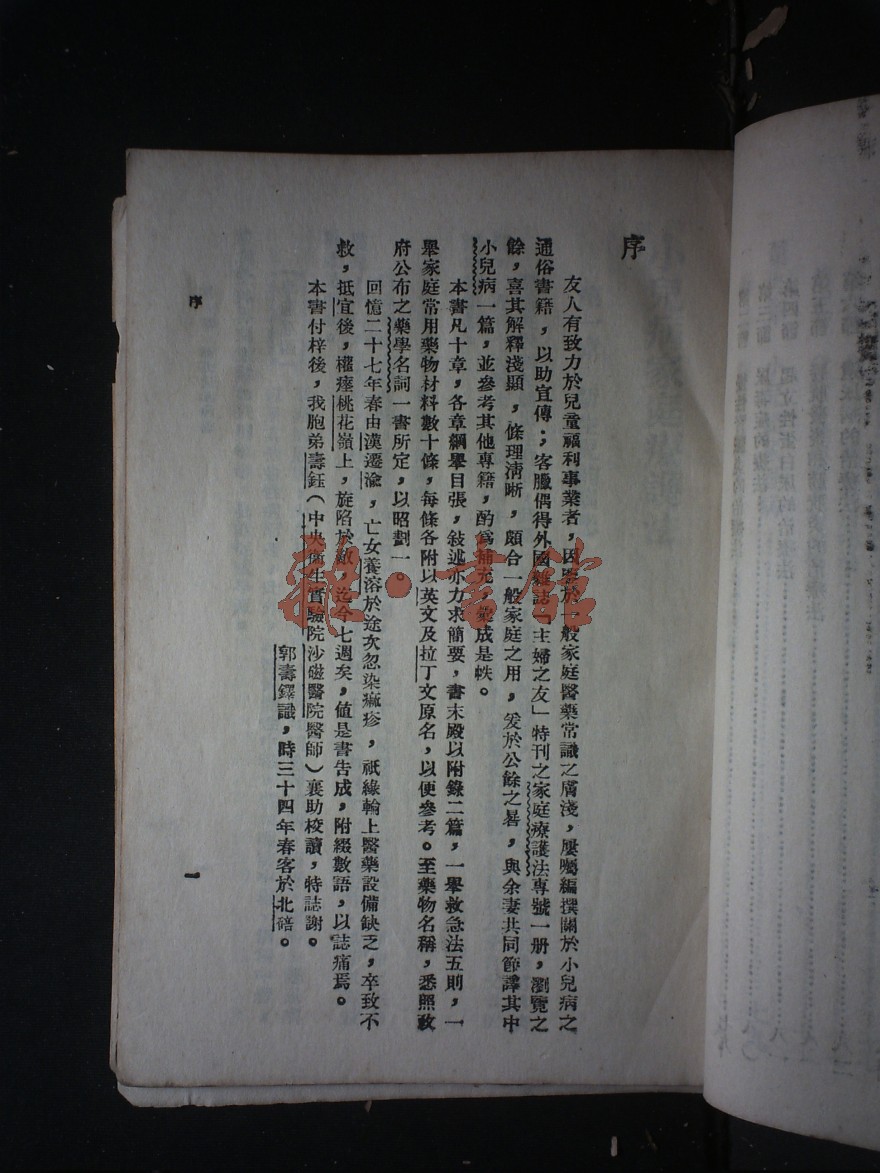 序
友人有致力於兒童福利事業者，因鑒於一般家庭醫藥常識之膚淺，屢囑編撰關於小兒病之
通俗書籍，以助宣傳；客臘偶得外國雜誌「主婦之友」特刊之家庭療護法專號一册，瀏覽之
餘，喜其解釋淺顯，條理清晰，頗合一般家庭之用，爰於公餘之晷，與余妻共同節譯其中
小兒病一篇，並參考其他專籍，酌爲補充，彙成是帙。
本書凡十章，各章綱舉目張，敍述亦力求簡要，書末殿以附錄二篇，一舉救急法五則，一
舉家庭常用藥物材料數十條，每條各附以英文及拉丁文原名，以便參考。至藥物名稱，悉照政
府公布之藥學名詞一書所定，以昭劃一。
回憶二十七年春由漢遷渝，亡女養溶於途次忽染痲疹，祇緣輪上醫藥設備缺乏，卒致不
救，抵宜後，權瘞桃花嶺上，旋陷於敵，迄今七週矣，値是書告成，附綴數語，以誌痛焉。
本書付梓後，我胞弟壽鈺（中央衞生實驗院沙磁醫院醫師）襄助校讀，特誌謝。
郭壽鐸識，時三十四年春客於北碚。
序
一
雜·書館